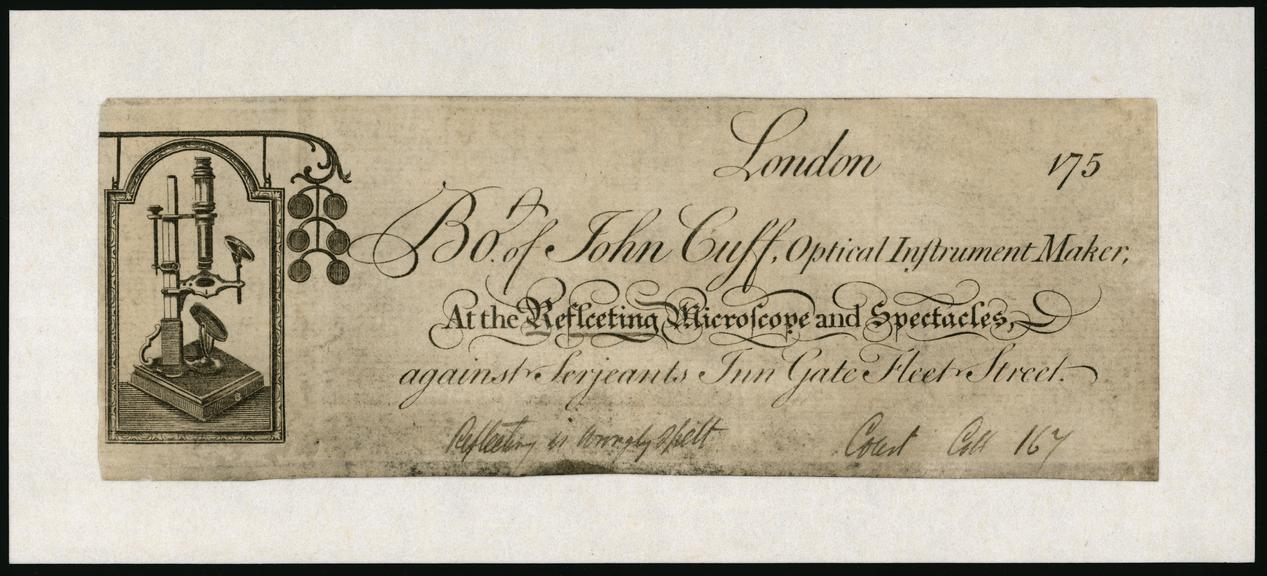 London 175
Bo.t of John Cuff, Optical Inſtrument Maker,
At the Reflceting Microſcope and Spectacles,
against Serjeants Inn Gate Fleet Street.
Reflecting is wrongly spelt Court Coll 167